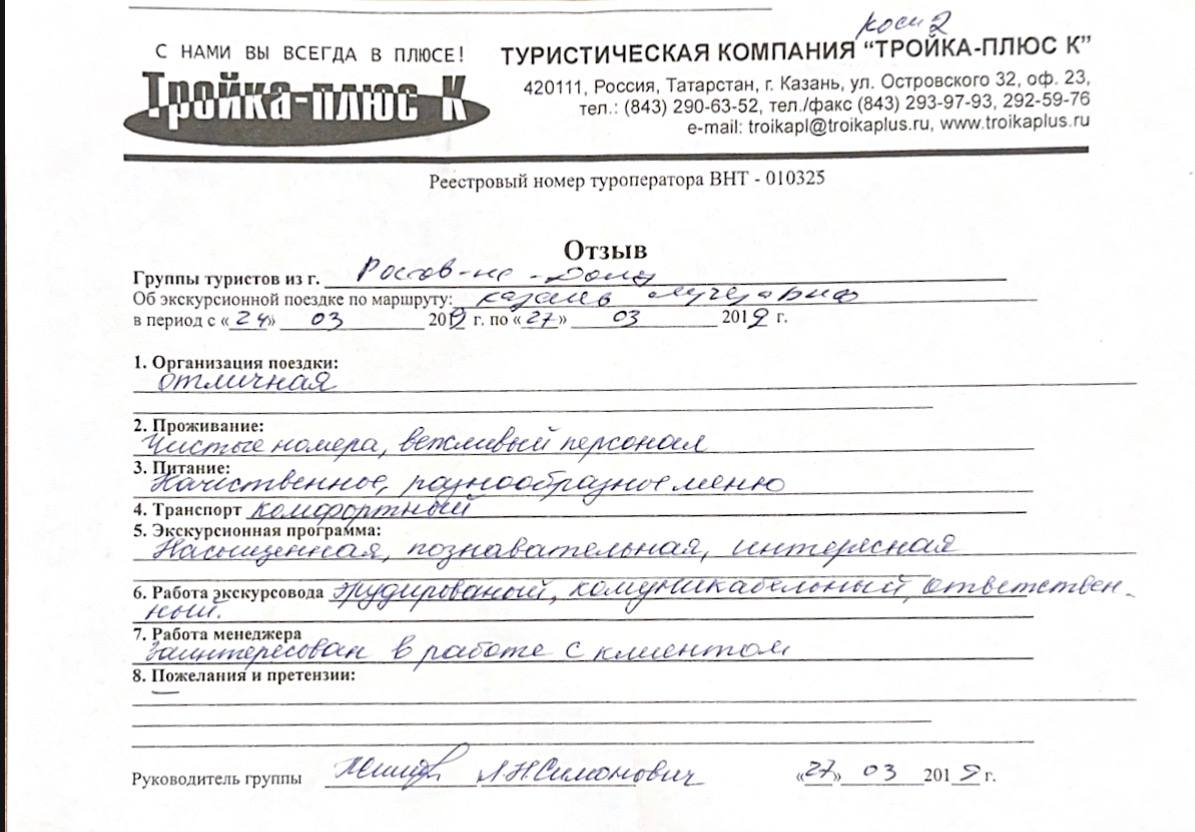 С НАМИ ВЫ ВСЕГДА В ПЛЮСЕ!
Тройка-плюс К
ТУРИСТИЧЕСКАЯ КОМПАНИЯ "ТРОЙКА-ПЛЮС К"
420111, Россия, Татарстан, г. Казань, ул. Островского 32, оф. 23,
тел.: (843) 290-63-52, тел./факс (843) 293-97-93, 292-59-76
e-mail: troikapl@troikaplus.ru, www.troikaplus.ru
Реестровый номер туроператора ВНТ - 010325
Отзыв
Группы туристов из г. Ростов-на-Дону
Об экскурсионной поездке по маршруту: Казань
в период с «24» 03 2019 г. по «27» 03 2019 г.
1. Организация поездки:
отличная
2. Проживание:
Чистые номера, вежливый персонал
3. Питание:
Качиственное, разнообразное меню
4. Транспорт комфортный
5. Экскурсионная программа:
Насыщенная, познавательная, интересная
6. Работа экскурсовода эрудированый, комуникабельный, ответствен-
ный.
7. Работа менеджера
Заинтересован в работе с клиентом
8. Пожелания и претензии:
—
Руководитель группы Л.Н.Симонович «27» 03 2019 г.